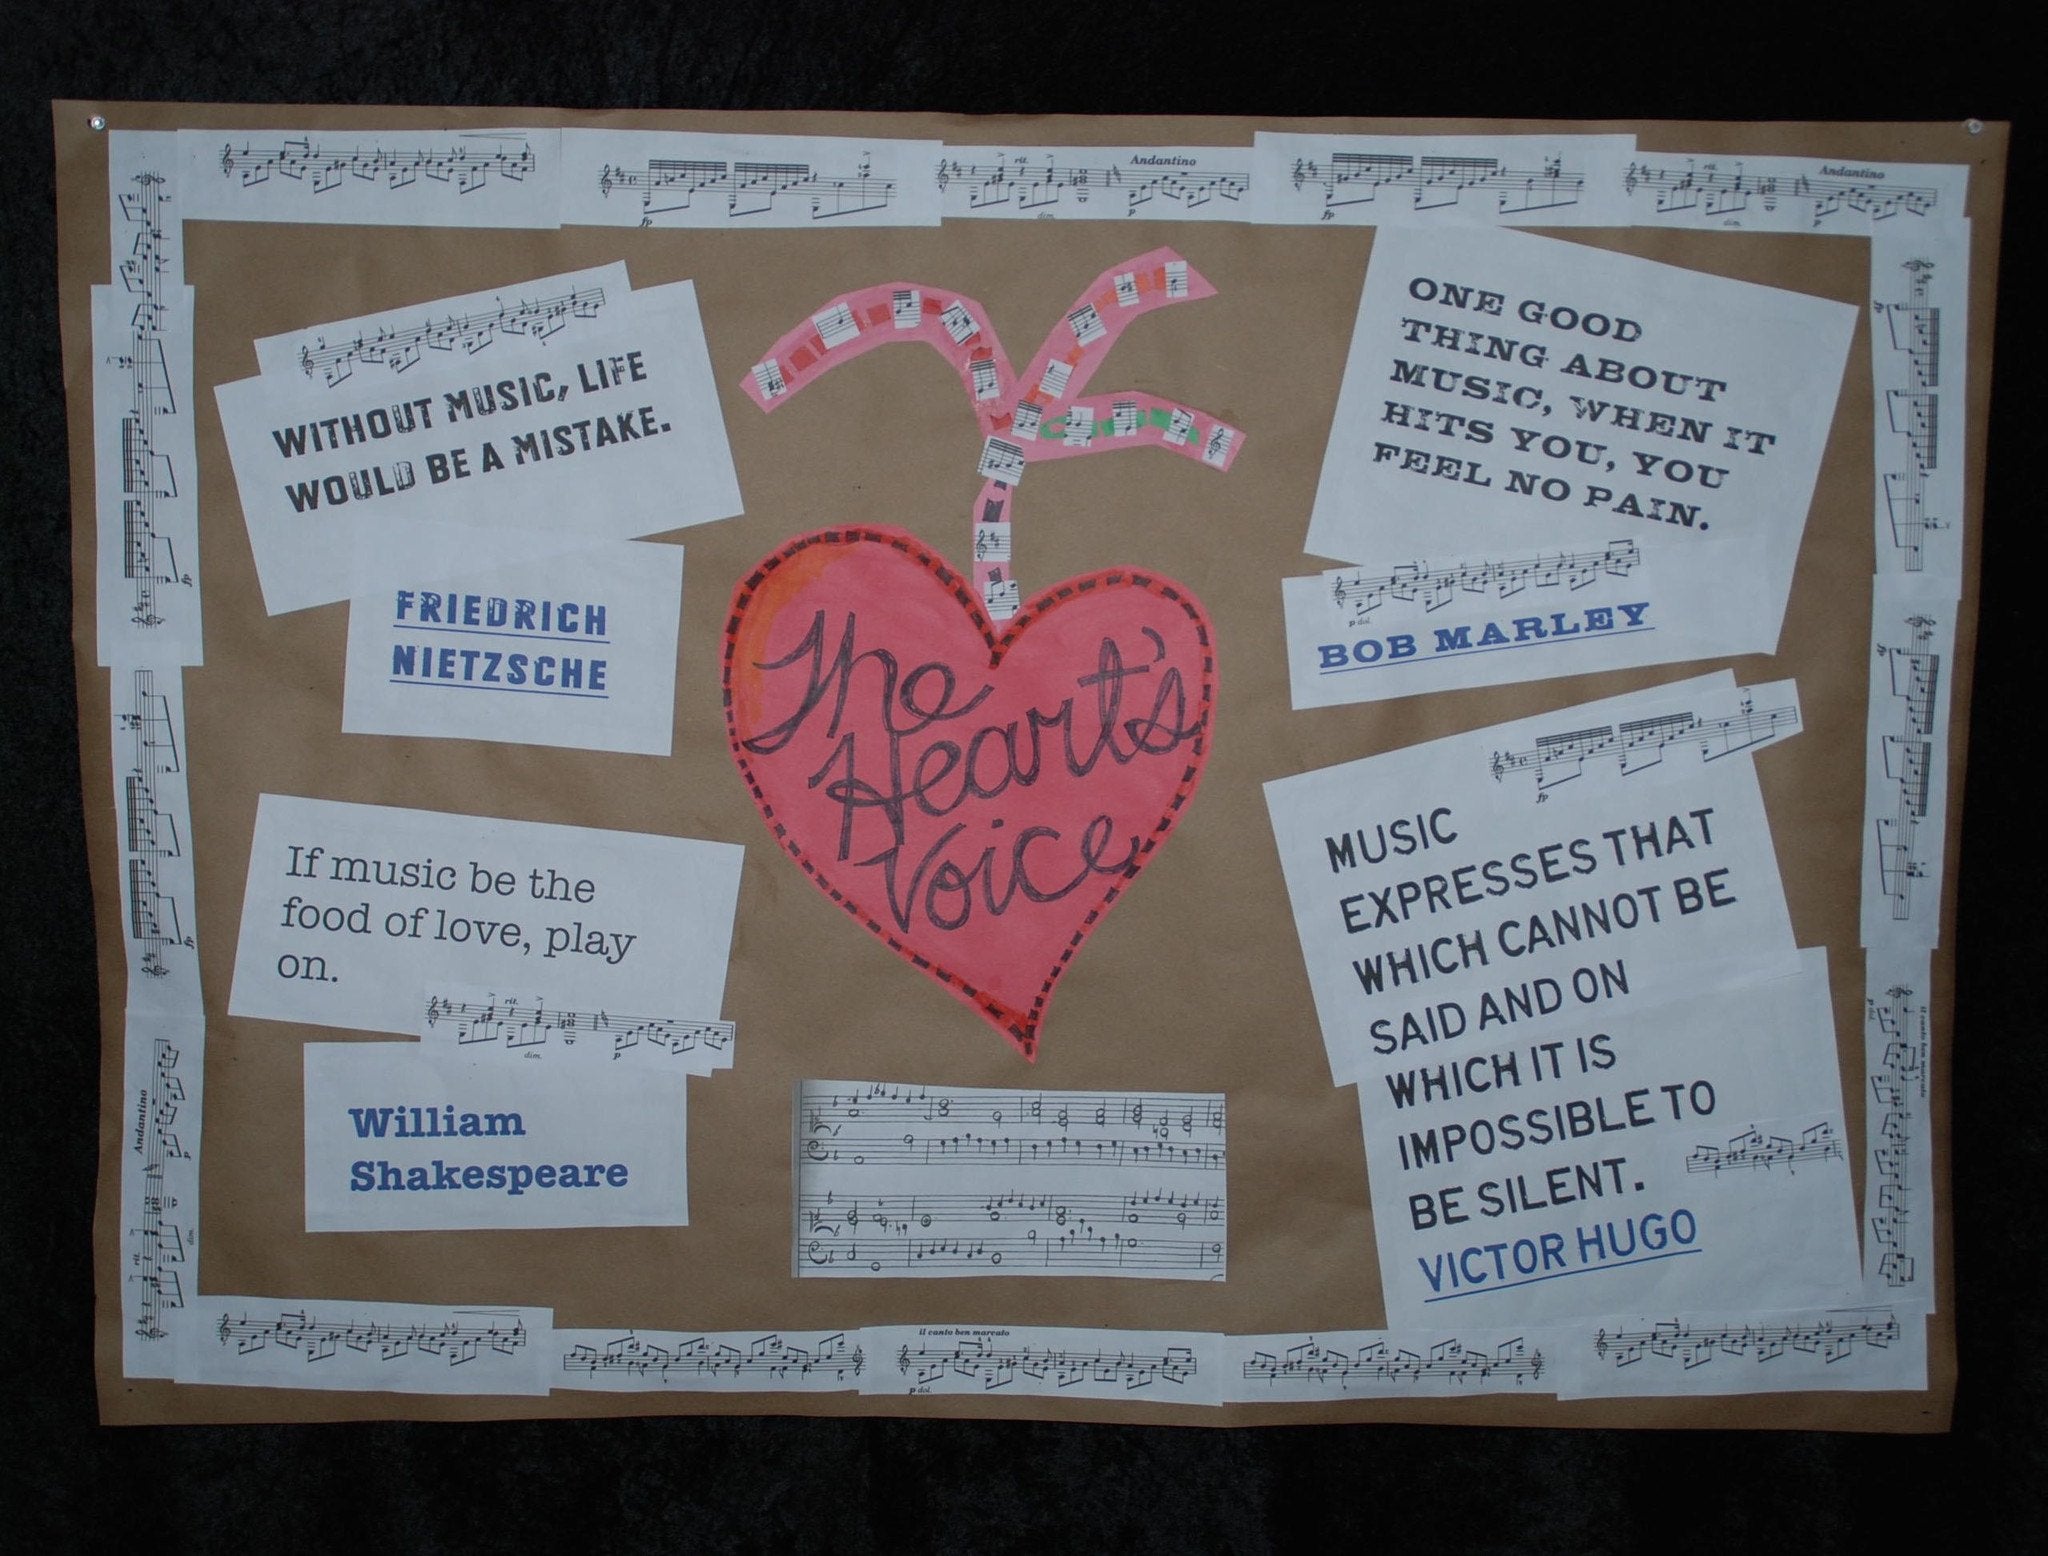 Andantino
rit.
dim.
p
fp
Andantino
rit.
dim.
p
fp
WITHOUT MUSIC, LIFE
WOULD BE A MISTAKE.
FRIEDRICH
NIETZSCHE
If music be the
food of love, play
on.
rit.
dim.
p
William
Shakespeare
The
Heart's
Voice
ONE GOOD
THING ABOUT
MUSIC, WHEN IT
HITS YOU, YOU
FEEL NO PAIN.
p dol.
BOB MARLEY
fp
MUSIC
EXPRESSES THAT
WHICH CANNOT BE
SAID AND ON
WHICH IT IS
IMPOSSIBLE TO
BE SILENT.
VICTOR HUGO
fp
fp
Andantino
p
dim.
rit.
fp
fp
il canto ben marcato
p dol.
il canto ben marcato
p dol.